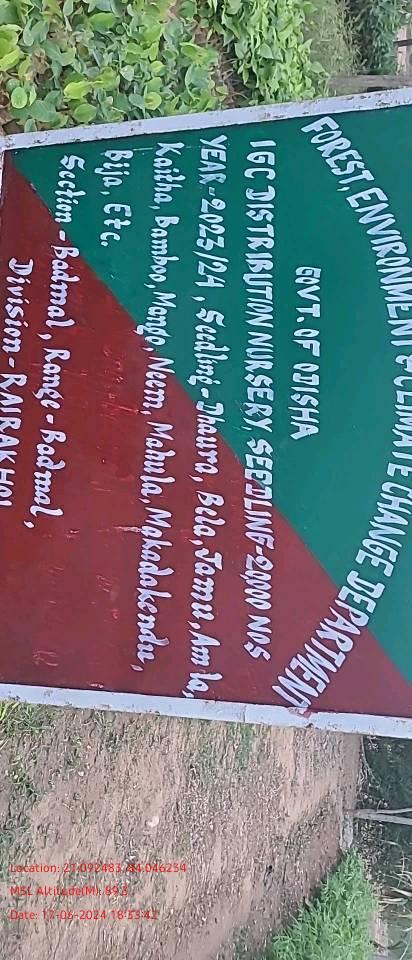 FOREST, ENVIRONMENT & CLIMATE CHANGE DEPARTMENT
GOVT. OF ODISHA
IGC DISTRIBUTION NURSERY, SEEDLING-2,000 NOS
YEAR-2023/24, Seedling-Dhaura, Bela Jamu, Amla,
Kaitha, Bamboo, Mango, Neem, Mahula, Makadakendu,
Bija Etc.
Section-Badmal, Range-Badmal,
Division-RAIRAKHOL
Location: 21.092483, 84.046234
MSL Altitude(M): 89.3
Date: 17-06-2024 18:33:42